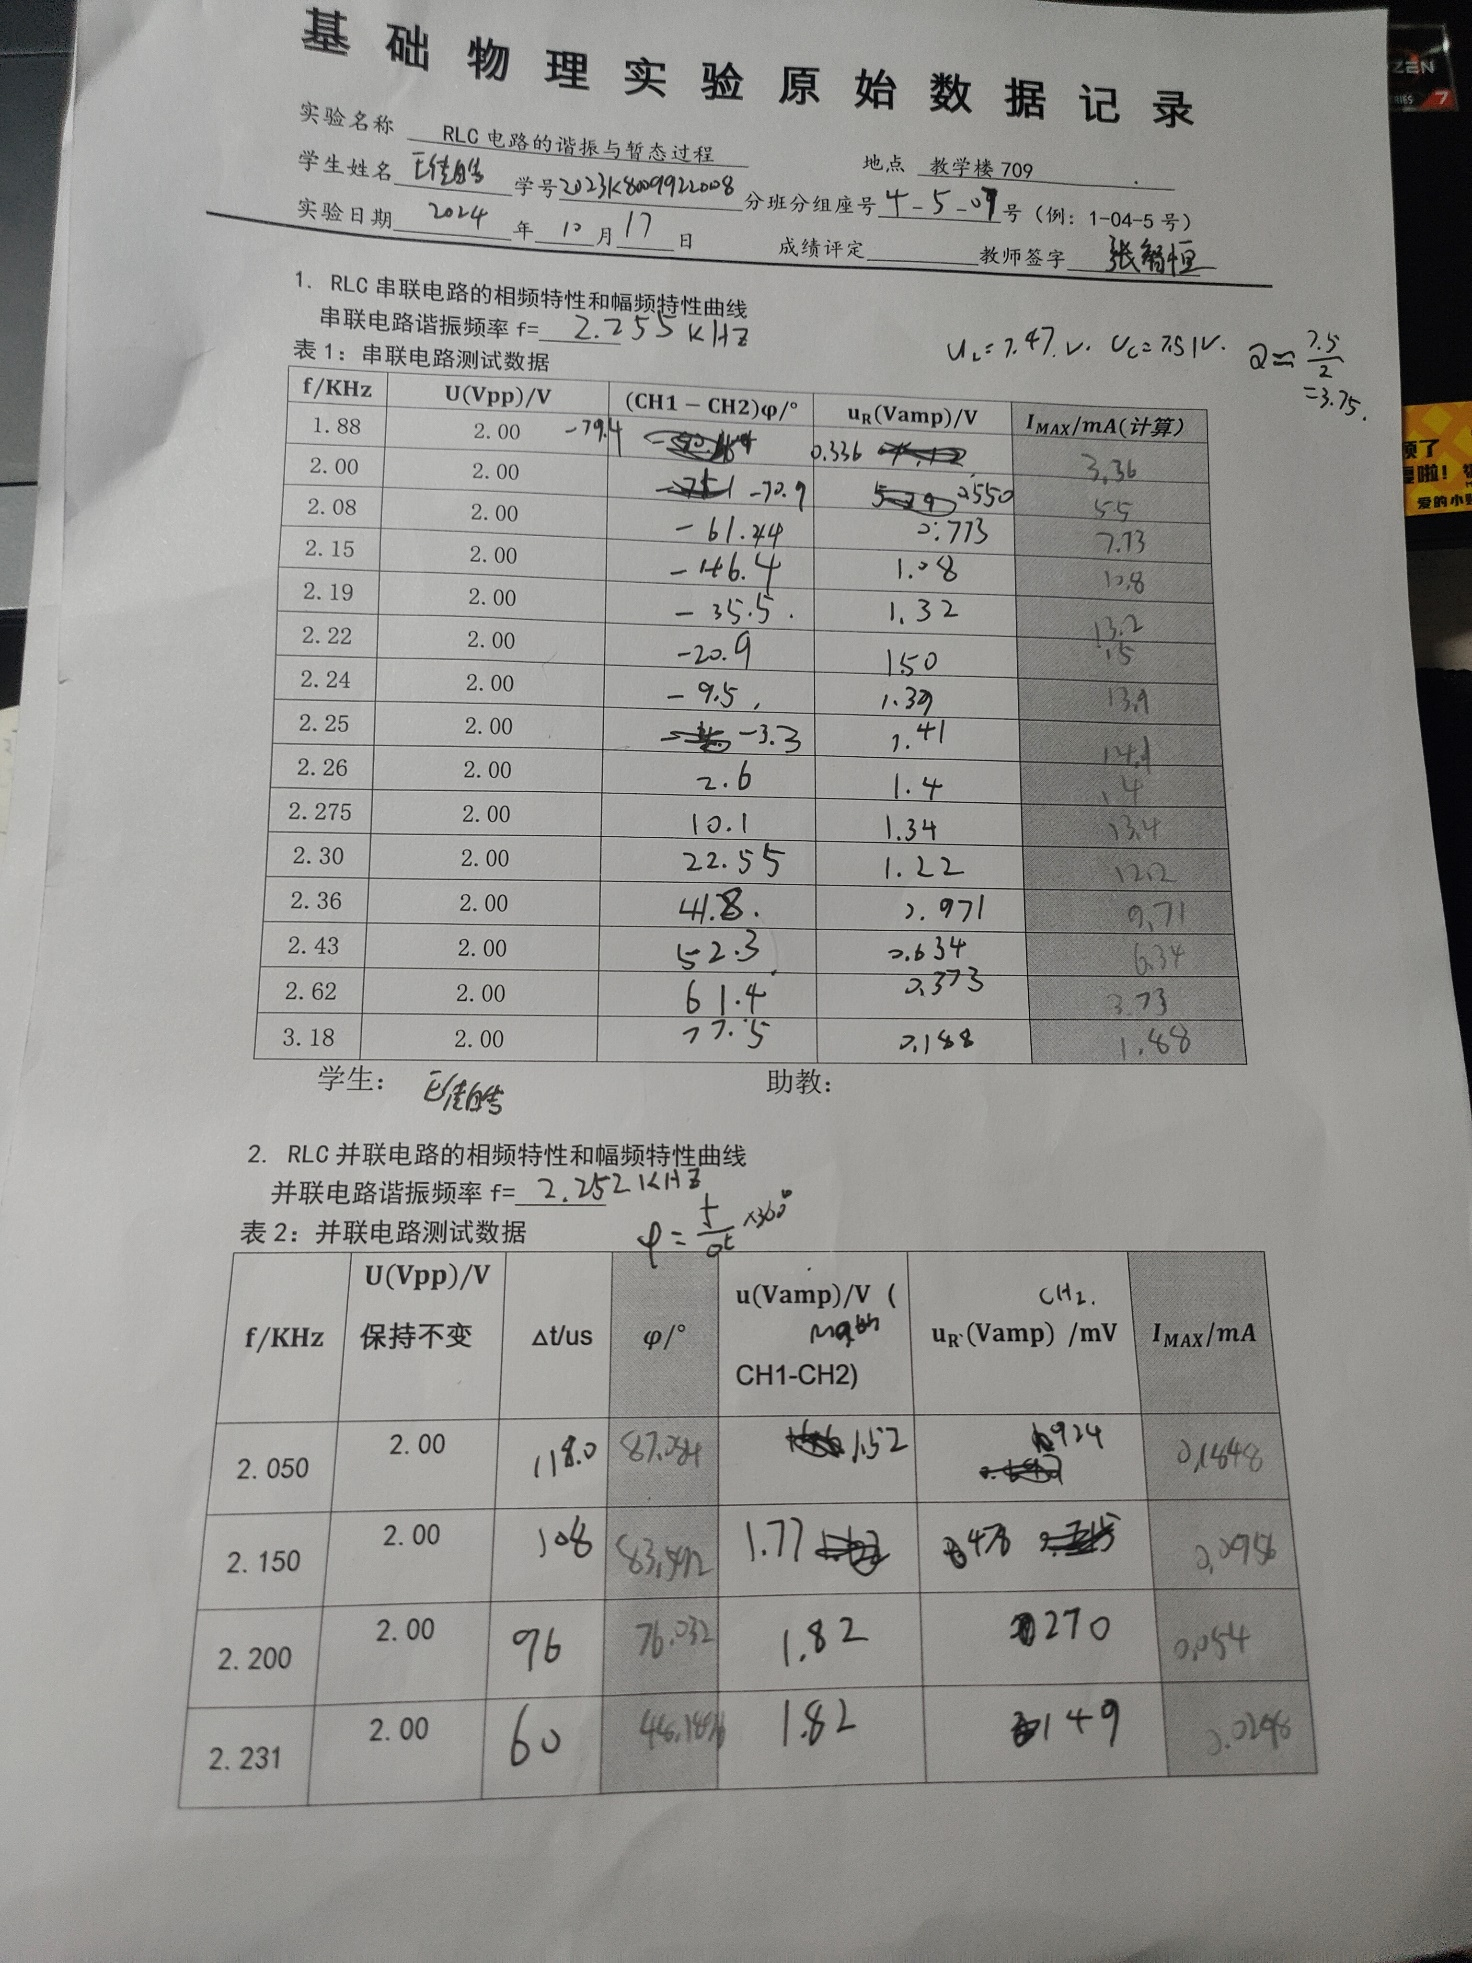 基础物理实验原始数据记录
实验名称 RLC 电路的谐振与暂态过程 地点 教学楼 709
学生姓名 王佳皓 学号 2023K8009922008 分班分组座号 4-5-07 号（例：1-04-5 号）
实验日期 2024 年 10 月 17 日 成绩评定 教师签字 张智恒
1. RLC 串联电路的相频特性和幅频特性曲线
串联电路谐振频率 f= 2.255KHZ
UL=7.47.V. UC=7.51V. Q≈7.5/2
=3.75.
表 1：串联电路测试数据
f/KHz U(Vpp)/V (CH1−CH2)φ/° uR(Vamp)/V IMAX/mA(计算)
1.88 2.00 -79.4 0.336 3.36
2.00 2.00 -70.9 0.550 5.5
2.08 2.00 -61.44 0.773 7.73
2.15 2.00 -46.4 1.08 10.8
2.19 2.00 -35.5. 1.32 13.2
2.22 2.00 -20.9 1.50 15
2.24 2.00 -9.5, 1.39 13.9
2.25 2.00 -3.3 1.41 14.1
2.26 2.00 2.6 1.4 14
2.275 2.00 10.1 1.34 13.4
2.30 2.00 22.55 1.22 12.2
2.36 2.00 41.8. 0.971 9.71
2.43 2.00 52.3 0.634 6.34
2.62 2.00 61.4 0.373 3.73
3.18 2.00 77.5 0.188 1.88
学生： 王佳皓 助教：
2. RLC 并联电路的相频特性和幅频特性曲线
并联电路谐振频率 f= 2.252KHZ
表 2：并联电路测试数据 φ=t/Δt×360°
f/KHz U(Vpp)/V 保持不变 Δt/us φ/° u(Vamp)/V (Math CH1-CH2) CH2. uR`(Vamp) /mV IMAX/mA
2.050 2.00 118.0 87.084 1.52 924 0.1848
2.150 2.00 108 83.592 1.77 478 0.0956
2.200 2.00 96 76.032 1.82 270 0.054
2.231 2.00 60 1.82 149 0.0298
ZEN
7
爱的小